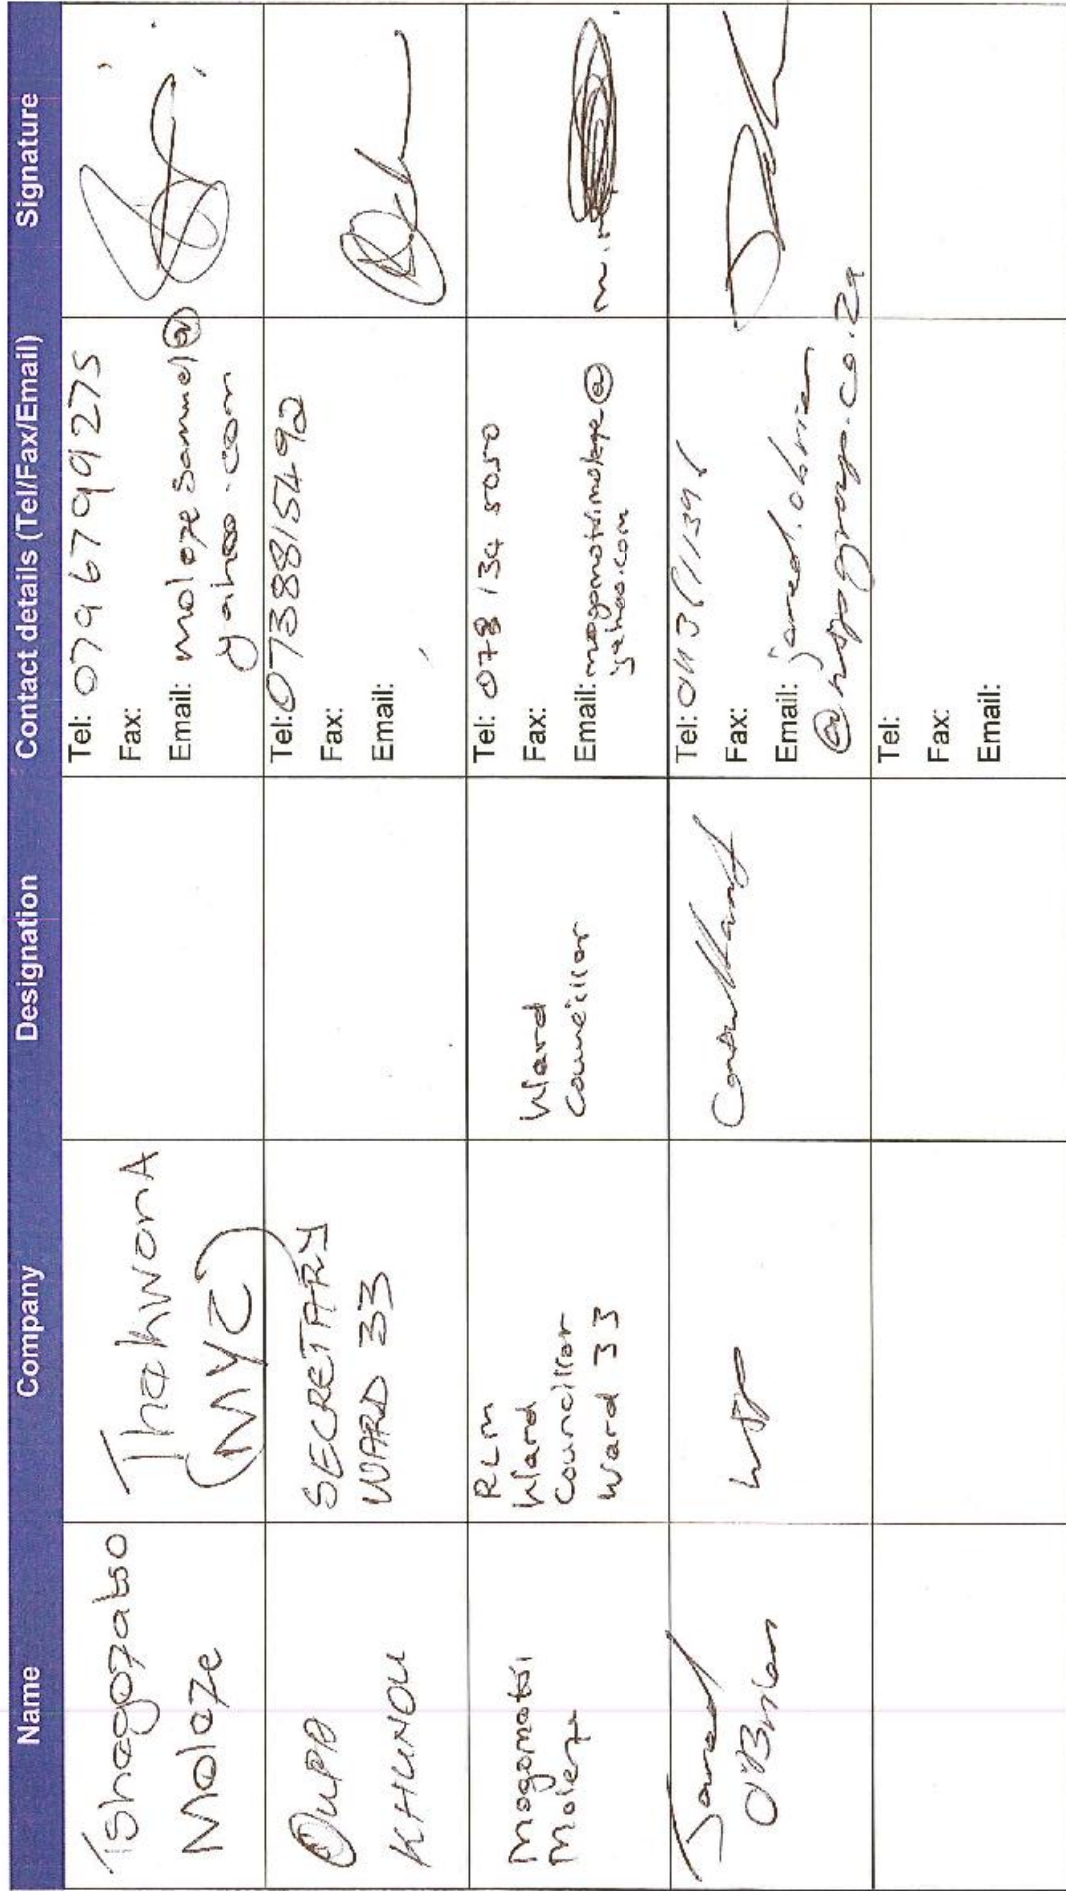 Name Company Designation Contact details (Tel/Fax/Email) Signature
Tshegofatso
Moleze
ThekwanA
(MYC)
Tel: 0796799275
Fax:
Email: molezesammel@
yahoo.com
OUPA
KHUNOU
SECRETARY
WARD 33
Tel: 0738815492
Fax:
Email:
Mogomotsi
Moleze
RLM
Ward
Councillor
Ward 33
Ward
Councillor
Tel: 078 134 5050
Fax:
Email: mogomotsimoleze@
yahoo.com
Jared
O'Brien
WSP
Consultant
Tel:
Fax:
Email: jared.obrien
@wspgroup.co.za
Tel:
Fax:
Email: